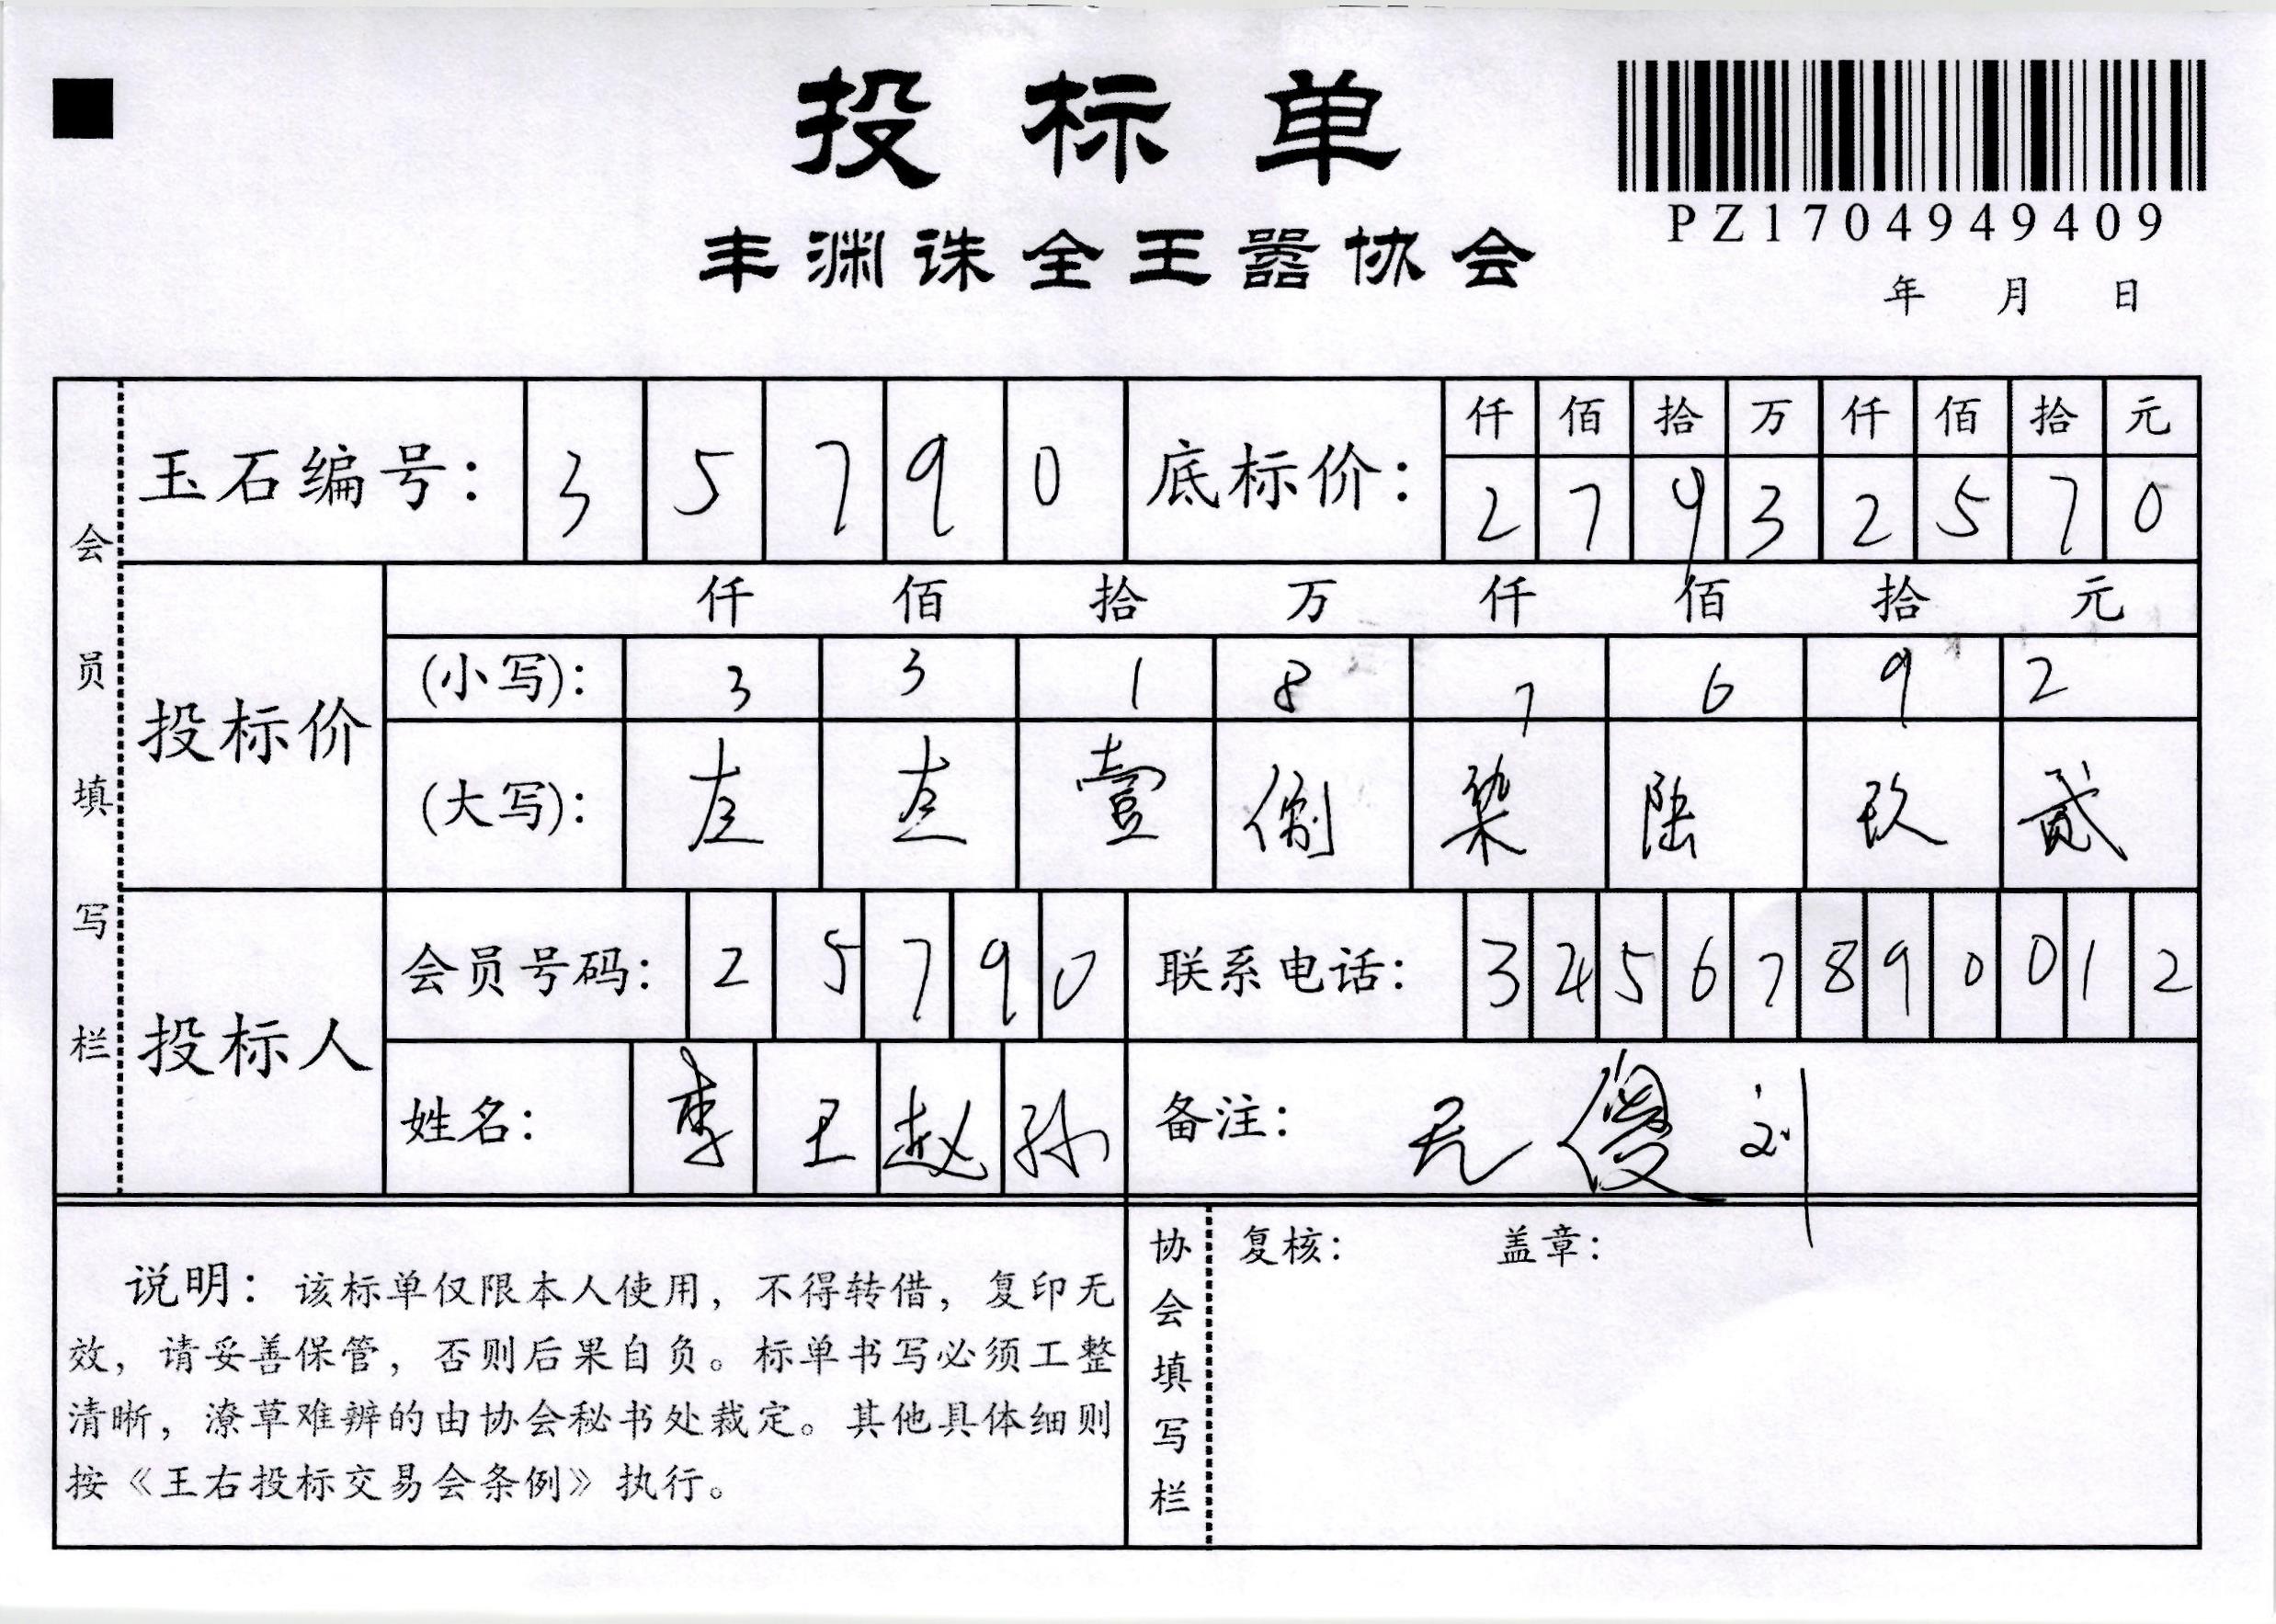 投标单
PZ1704949409
丰渊诛全王嚣协会
年 月 日
会员填写栏
玉石编号: 3 5 7 9 0 底标价: 仟 佰 拾 万 仟 佰 拾 元
2 7 9 3 2 5 7 0
投标价
仟 佰 拾 万 仟 佰 拾 元
(小写): 3 3 1 8 7 6 9 2
(大写): 壹 捌 柒 陆 玖 贰
投标人
会员号码: 2 5 7 9 0 联系电话: 3 2 4 5 6 7 8 9 0 0 1 2
姓名: 李 王 赵 孙 备注: 无 刘
说明:该标单仅限本人使用,不得转借,复印无
效,请妥善保管,否则后果自负。标单书写必须工整
清晰,潦草难辨的由协会秘书处裁定。其他具体细则
按《王右投标交易会条例》执行。
协会填写栏
复核: 盖章: